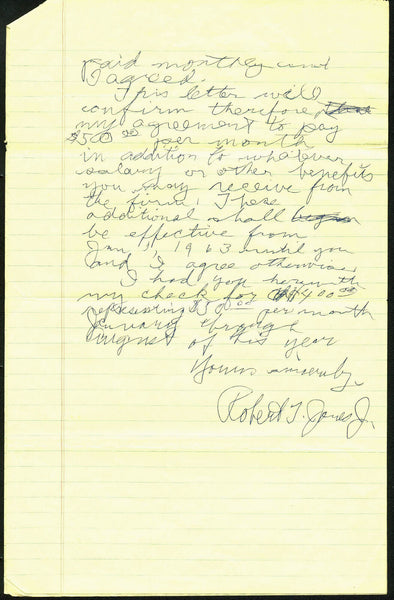 paid monthly and
I agreed.
This letter will
confirm therefore
my agreement to pay
$50 00 per month
in addition to whatever
salary or other benefits
you may receive from
the firm. These
additional shall began
be effective from
Jan, 1, 1963 until you
and I agree otherwise.
I hand you herewith
my check for $400 00
representing $50 00 per month
January through
August of this year
Yours sincerely,
Robert T. Jones Jr.